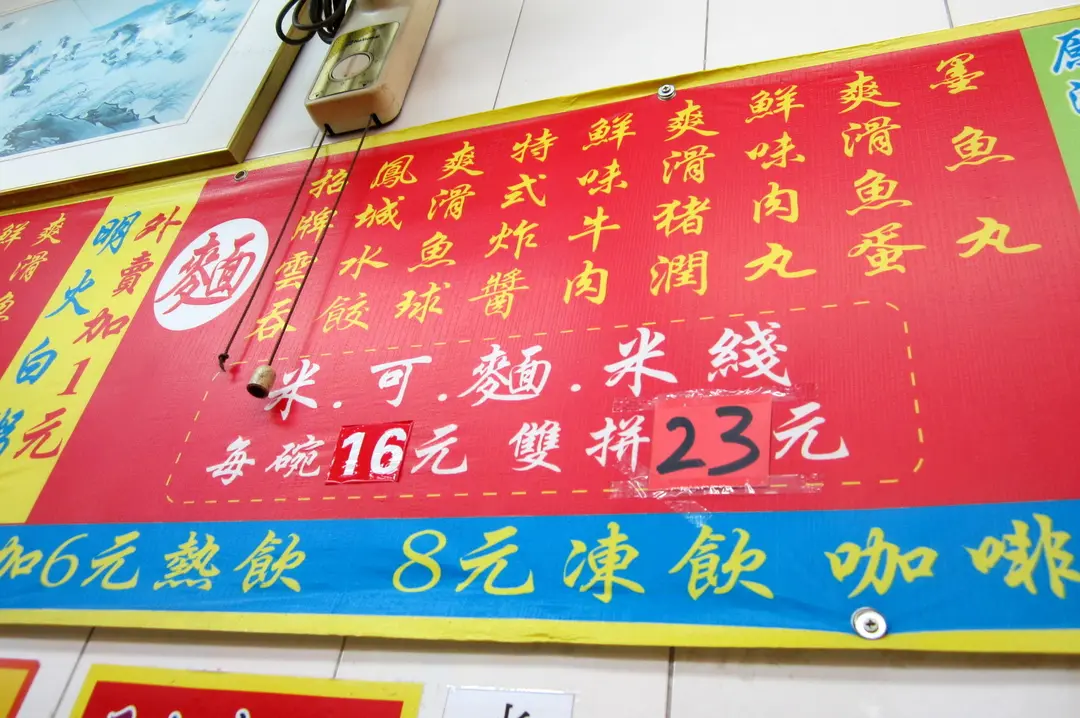 爽滑魚
鮮
外賣加1元
明火白粥
麵
招牌雲吞
鳳城水餃
爽滑魚球
特式炸醬
鮮味牛肉
爽滑猪潤
鮮味肉丸
爽滑魚蛋
墨魚丸
米.可.麵.米綫
每碗16元 雙拼23元
加6元熱飲 8元凍飲 咖啡
原